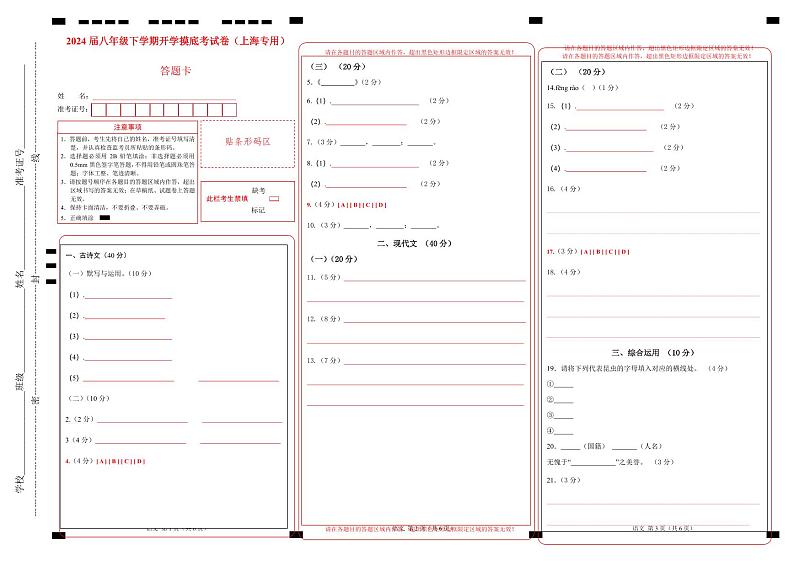 准考证号
姓名
班级
学校
线
封
密
2024 届八年级下学期开学摸底考试卷（上海专用）
答题卡
姓 名：
准考证号：
注意事项
1．答题前，考生先将自己的姓名，准考证号填写清楚，并认真检查监考员所粘贴的条形码。
2．选择题必须用 2B 铅笔填涂；非选择题必须用 0.5mm 黑色签字笔答题，不得用铅笔或圆珠笔答题；字体工整、笔迹清晰。
3．请按题号顺序在各题目的答题区域内作答，超出区域书写的答案无效；在草稿纸、试题卷上答题无效。
4．保持卡面清洁，不要折叠、不要弄破。
5．正确填涂
贴条形码区
此栏考生禁填
缺考
标记
一、古诗文（40 分）
（一）默写与运用。（10 分）
（1）.
（2）.
（3）.
（4）.
（5）
（二）（10 分）
2.（2 分）
3（4 分）
4.（4 分）[ A ] [ B ] [ C ] [ D ]
请在各题目的答题区域内作答，超出黑色矩形边框限定区域的答案无效！
（三）（20 分）
5.《 》（2 分）
6.（1）. （2 分）
（2）. （2 分）
7.（3 分） ， ； 。
8.（1） （2 分）
（2）. （2 分）
9.（4 分）[ A ] [ B ] [ C ] [ D ]
10.（3 分） ， ； 。
二、现代文 （40 分）
（一）（20 分）
11.（5 分）
12.（8 分）
13.（7 分）
请在各题目的答题区域内作答，超出黑色矩形边框限定区域的答案无效！
请在各题目的答题区域内作答，超出黑色矩形边框限定区域的答案无效！
请在各题目的答题区域内作答，超出黑色矩形边框限定区域的答案无效！
（二）（20 分）
14.fēng ráo（ ）（1 分）
15.（1）. （2 分）
（2）. （2 分）
（3）. （2 分）
（4）. （2 分）
16.（4 分）
17.（3 分）[ A ] [ B ] [ C ] [ D ]
18.（4 分）
三、综合运用 （10 分）
19．请将下列代表昆虫的字母填入对应的横线处。 （4 分）
①
②
③
④
20． （国籍） （人名）
无愧于“ ”之美誉。（3 分）
21.（3 分）
语文 第 3 页（共 6 页）